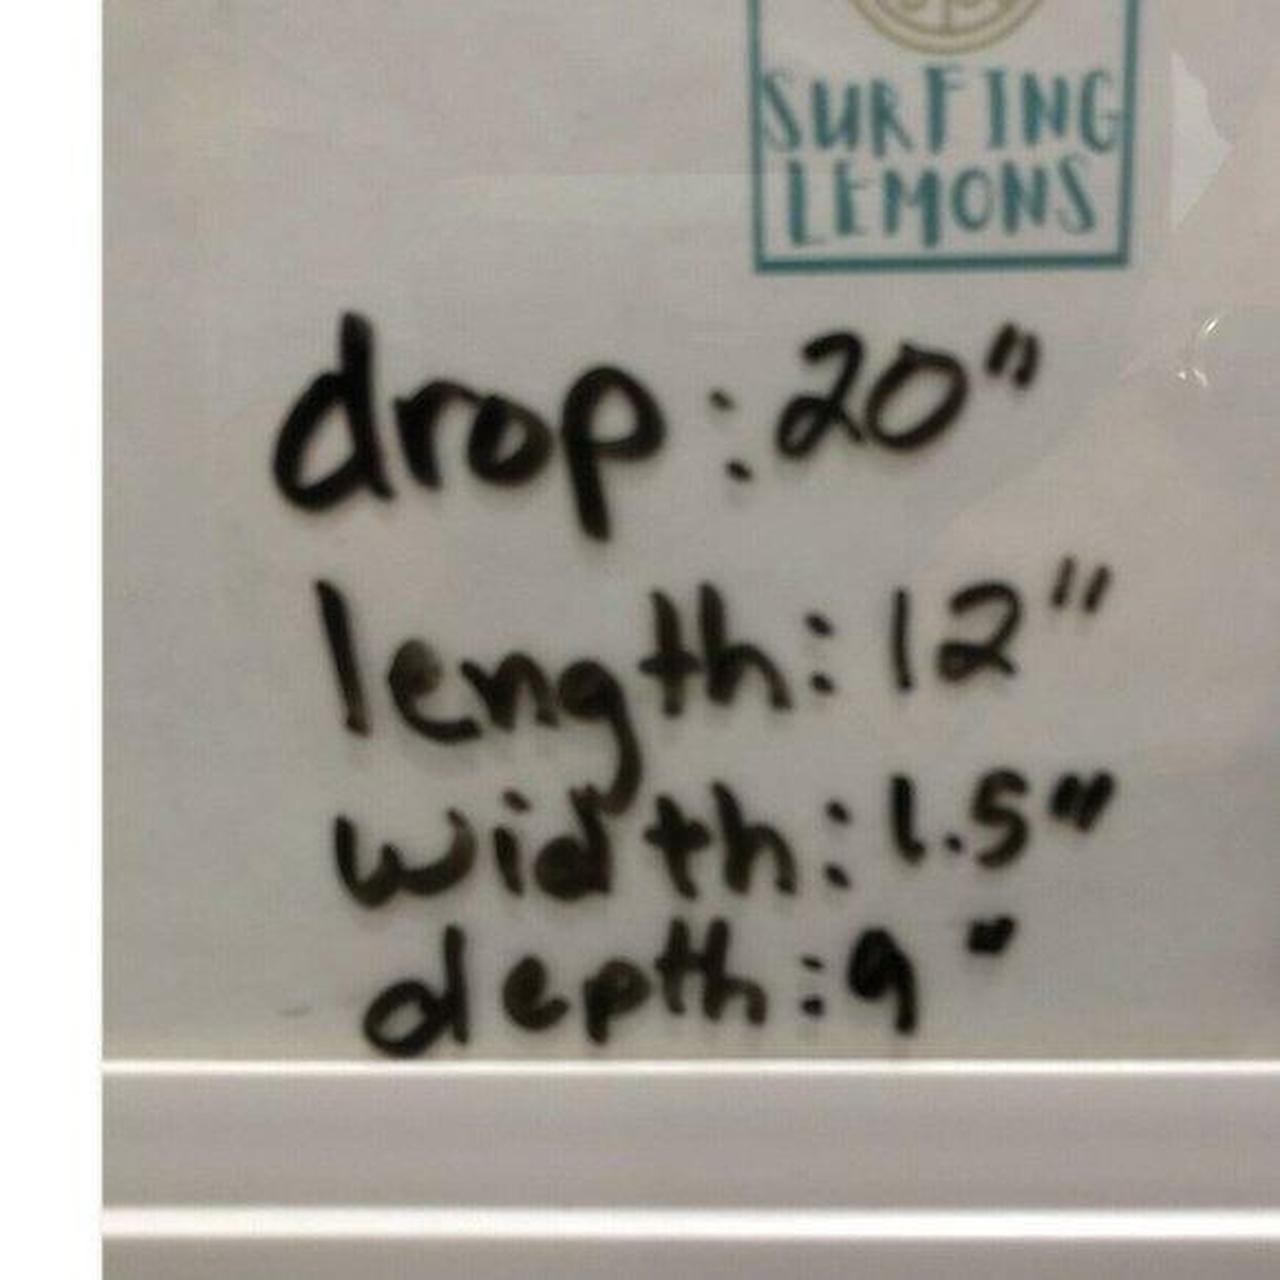 SURFING
LEMONS
drop: 20"
length: 12"
width: 1.5"
depth: 9"